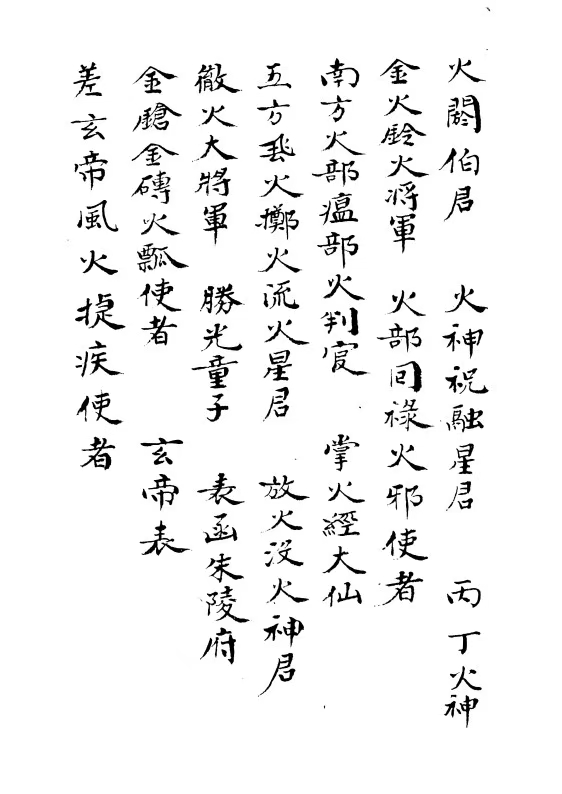 火閼伯君　火神祝融星君　丙丁火神
金火鈴火將軍　火部回祿火邪使者
南方火部瘟部火判官　掌火經大仙
五方飛火擲火流火星君　放火沒火神君
徹火大將軍　勝光童子　表函朱陵府
金鎗金磚火瓢使者　玄帝表
差玄帝風火捷疾使者